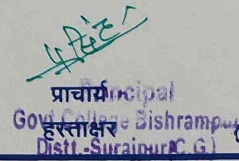 प्राचार्य
Principal
Govt College Bishrampur
हस्ताक्षर
Distt.-Surajpur(C.G.)